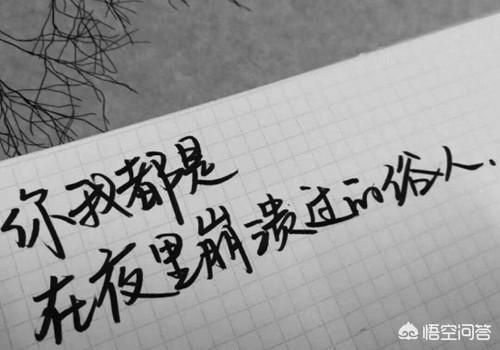 你我都是
在夜里崩溃过的俗人.
悟空问答